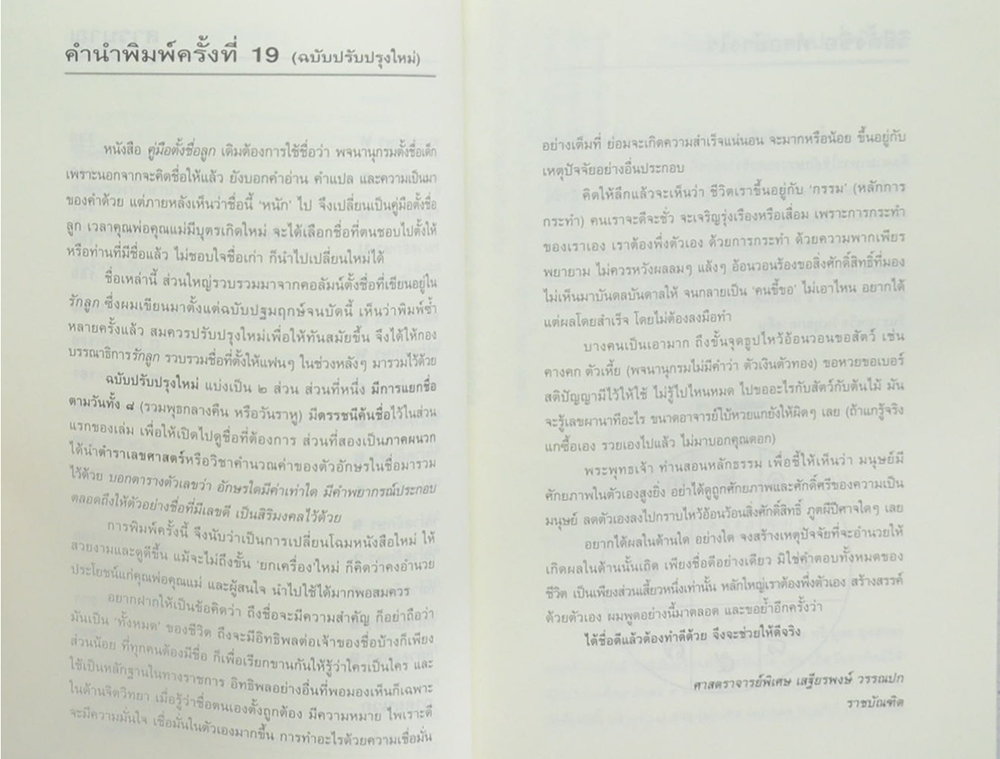 คำนำพิมพ์ครั้งที่ 19 (ฉบับปรับปรุงใหม่)
หนังสือ คู่มือตั้งชื่อลูก เดิมต้องการใช้ชื่อว่า พจนานุกรมตั้งชื่อเด็ก
เพราะนอกจากจะคิดชื่อให้แล้ว ยังบอกคำอ่าน คำแปล และความเป็นมา
ของคำด้วย แต่ภายหลังเห็นว่าชื่อนี้ 'หนัก' ไป จึงเปลี่ยนเป็นคู่มือตั้งชื่อ
ลูก เวลาคุณพ่อคุณแม่มีบุตรเกิดใหม่ จะได้เลือกชื่อที่ตนชอบไปตั้งให้
หรือท่านที่มีชื่อแล้ว ไม่ชอบใจชื่อเก่า ก็นำไปเปลี่ยนใหม่ได้
ชื่อเหล่านี้ ส่วนใหญ่รวบรวมมาจากคอลัมน์ตั้งชื่อที่เขียนอยู่ใน
รักลูก ซึ่งผมเขียนมาตั้งแต่ฉบับปฐมฤกษ์จนบัดนี้ เห็นว่าพิมพ์ซ้ำ
หลายครั้งแล้ว สมควรปรับปรุงใหม่เพื่อให้ทันสมัยขึ้น จึงได้ให้กอง
บรรณาธิการรักลูก รวบรวมชื่อที่ตั้งให้แฟนๆ ในช่วงหลังๆ มารวมไว้ด้วย
ฉบับปรับปรุงใหม่ แบ่งเป็น ๒ ส่วน ส่วนที่หนึ่ง มีการแยกชื่อ
ตามวันทั้ง ๘ (รวมพุธกลางคืน หรือวันราหู) มีดรรชนีค้นชื่อไว้ในส่วน
แรกของเล่ม เพื่อให้เปิดไปดูชื่อที่ต้องการ ส่วนที่สองเป็นภาคผนวก
ได้นำตำราเลขศาสตร์หรือวิชาคำนวณค่าของตัวอักษรในชื่อมารวม
ไว้ด้วย บอกตารางตัวเลขว่า อักษรใดมีค่าเท่าใด มีคำพยากรณ์ประกอบ
ตลอดถึงให้ตัวอย่างชื่อที่มีเลขดี เป็นสิริมงคลไว้ด้วย
การพิมพ์ครั้งนี้ จึงนับว่าเป็นการเปลี่ยนโฉมหนังสือใหม่ ให้
สวยงามและดูดีขึ้น แม้จะไม่ถึงขั้น 'ยกเครื่อง'ใหม่ ก็คิดว่าคงอำนวย
ประโยชน์แก่คุณพ่อคุณแม่ และผู้สนใจ นำไปใช้ได้มากพอสมควร
อยากฝากให้เป็นข้อคิดว่า ถึงชื่อจะมีความสำคัญ ก็อย่าถือว่า
มันเป็น 'ทั้งหมด' ของชีวิต ถึงจะมีอิทธิพลต่อเจ้าของชื่อบ้างก็เพียง
ส่วนน้อย ที่ทุกคนต้องมีชื่อ ก็เพื่อเรียกขานกันให้รู้ว่าใครเป็นใคร และ
ใช้เป็นหลักฐานในทางราชการ อิทธิพลอย่างอื่นที่พอมองเห็นก็เฉพาะ
ในด้านจิตวิทยา เมื่อรู้ว่าชื่อตนเองตั้งถูกต้อง มีความหมาย ไพเราะดี
จะมีความมั่นใจ เชื่อมั่นในตัวเองมากขึ้น การทำอะไรด้วยความเชื่อมั่น
อย่างเต็มที่ ย่อมจะเกิดความสำเร็จแน่นอน จะมากหรือน้อย ขึ้นอยู่กับ
เหตุปัจจัยอย่างอื่นประกอบ
คิดให้ลึกแล้วจะเห็นว่า ชีวิตเราขึ้นอยู่กับ 'กรรม' (หลักการ
กระทำ) คนเราจะดีจะชั่ว จะเจริญรุ่งเรืองหรือเสื่อม เพราะการกระทำ
ของเราเอง เราต้องพึ่งตัวเอง ด้วยการกระทำ ด้วยความพากเพียร
พยายาม ไม่ควรหวังผลลมๆ แล้งๆ อ้อนวอนร้องขอสิ่งศักดิ์สิทธิ์ที่มอง
ไม่เห็นมาบันดลบันดาลให้ จนกลายเป็น 'คนขี้ขอ' ไม่เอาไหน อยากได้
แต่ผลโดยสำเร็จ โดยไม่ต้องลงมือทำ
บางคนเป็นเอามาก ถึงขั้นจุดธูปไหว้อ้อนวอนขอสัตว์ เช่น
คางคก ตัวเหี้ย (พจนานุกรมไม่มีคำว่า ตัวเงินตัวทอง) ขอหวยขอเบอร์
สติปัญญามีไว้ให้ใช้ ไม่รู้ไปไหนหมด ไปขออะไรกับสัตว์กับต้นไม้ มัน
จะรู้เลขผานาทีอะไร ขนาดอาจารย์ใบ้หวยแกยังให้ผิดๆ เลย (ถ้าแกรู้จริง
แกซื้อเอง รวยเองไปแล้ว ไม่มาบอกคุณดอก)
พระพุทธเจ้า ท่านสอนหลักธรรม เพื่อชี้ให้เห็นว่า มนุษย์มี
ศักยภาพในตัวเองสูงยิ่ง อย่าได้ดูถูกศักยภาพและศักดิ์ศรีของความเป็น
มนุษย์ ลดตัวเองลงไปกราบไหว้อ้อนว้อนสิ่งศักดิ์สิทธิ์ ภูตผีปีศาจใดๆ เลย
อยากได้ผลในด้านใด อย่างใด จงสร้างเหตุปัจจัยที่จะอำนวยให้
เกิดผลในด้านนั้นเถิด เพียงชื่อดีอย่างเดียว มิใช่คำตอบทั้งหมดของ
ชีวิต เป็นเพียงส่วนเสี้ยวหนึ่งเท่านั้น หลักใหญ่เราต้องพึ่งตัวเอง สร้างสรรค์
ด้วยตัวเอง ผมพูดอย่างนี้มาตลอด และขอย้ำอีกครั้งว่า
ได้ชื่อดีแล้วต้องทำดีด้วย จึงจะช่วยให้ดีจริง
ศาสตราจารย์พิเศษ เสฐียรพงษ์ วรรณปก
ราชบัณฑิต